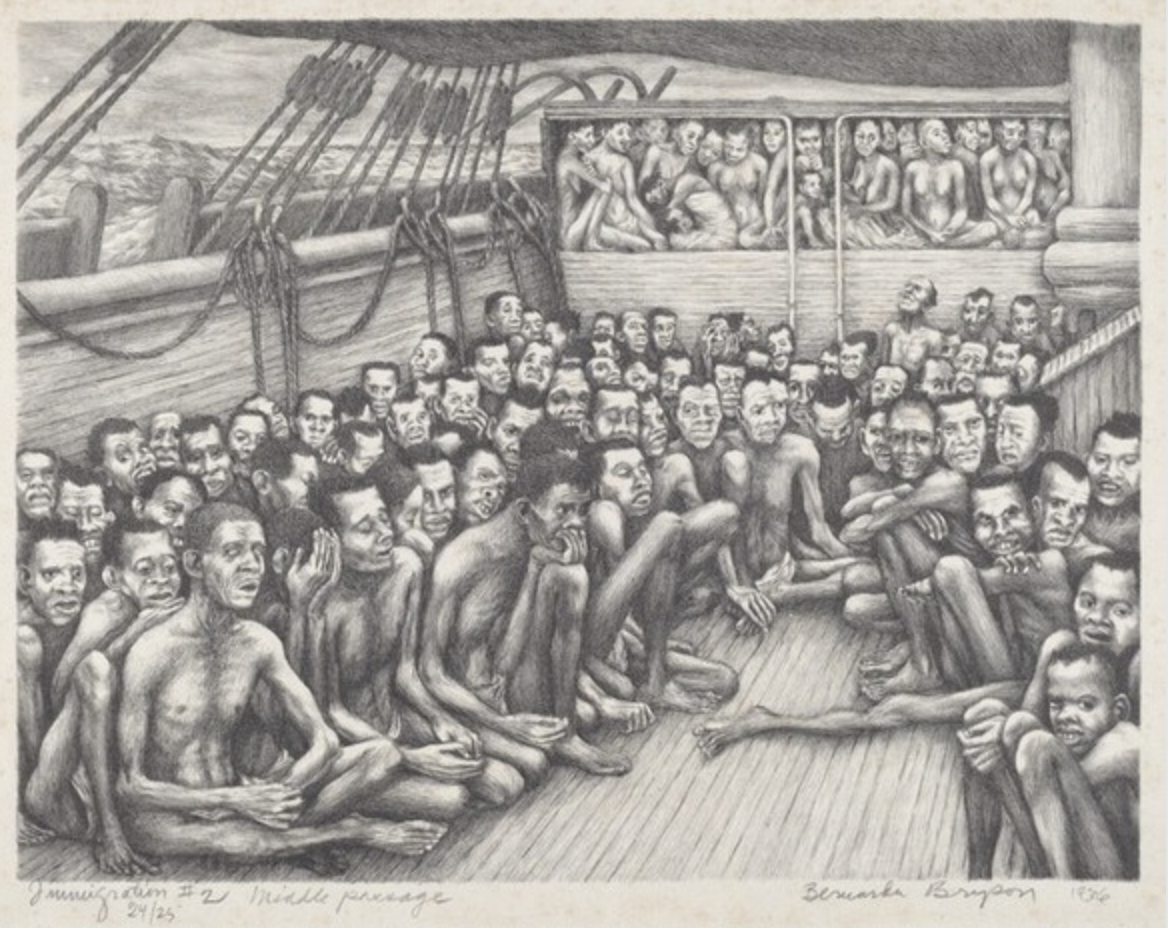 Immigration #2 Middle passage
24/25
Bernarda Bryson 1936